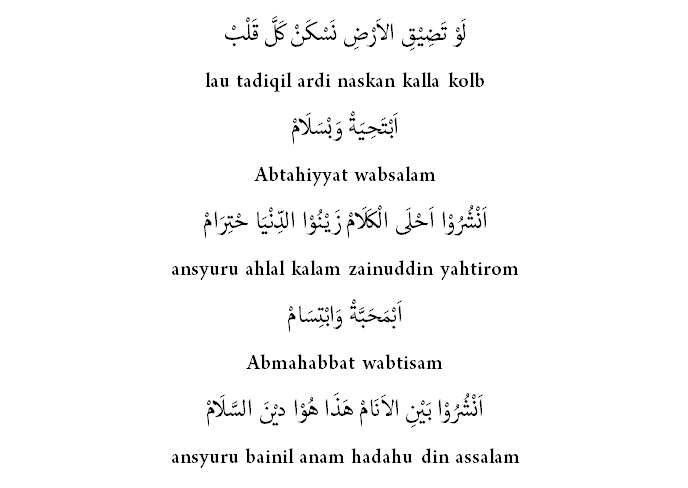 لَوْ تَضِيْقِ الاَرْضِ نَسْكَنْ كَلَّ قَلْبْ
lau tadiqil ardi naskan kalla kolb
اَبْتَحِيَةْ وَبْسَلَامْ
Abtahiyyat wabsalam
اَنْشُرُوْا اَحْلَى الْكَلَامْ زَيْنُوْا الدِّنْيَا حْتِرَامْ
ansyuru ahlal kalam zainuddin yahtirom
اَبْمَحَبَّةْ وَابْتِسَامْ
Abmahabbat wabtisam
اَنْشُرُوْا بَيْنِ الاَنَامْ هَذَا هُوْا دِيْنَ السَّلَامْ
ansyuru bainil anam hadahu din assalam